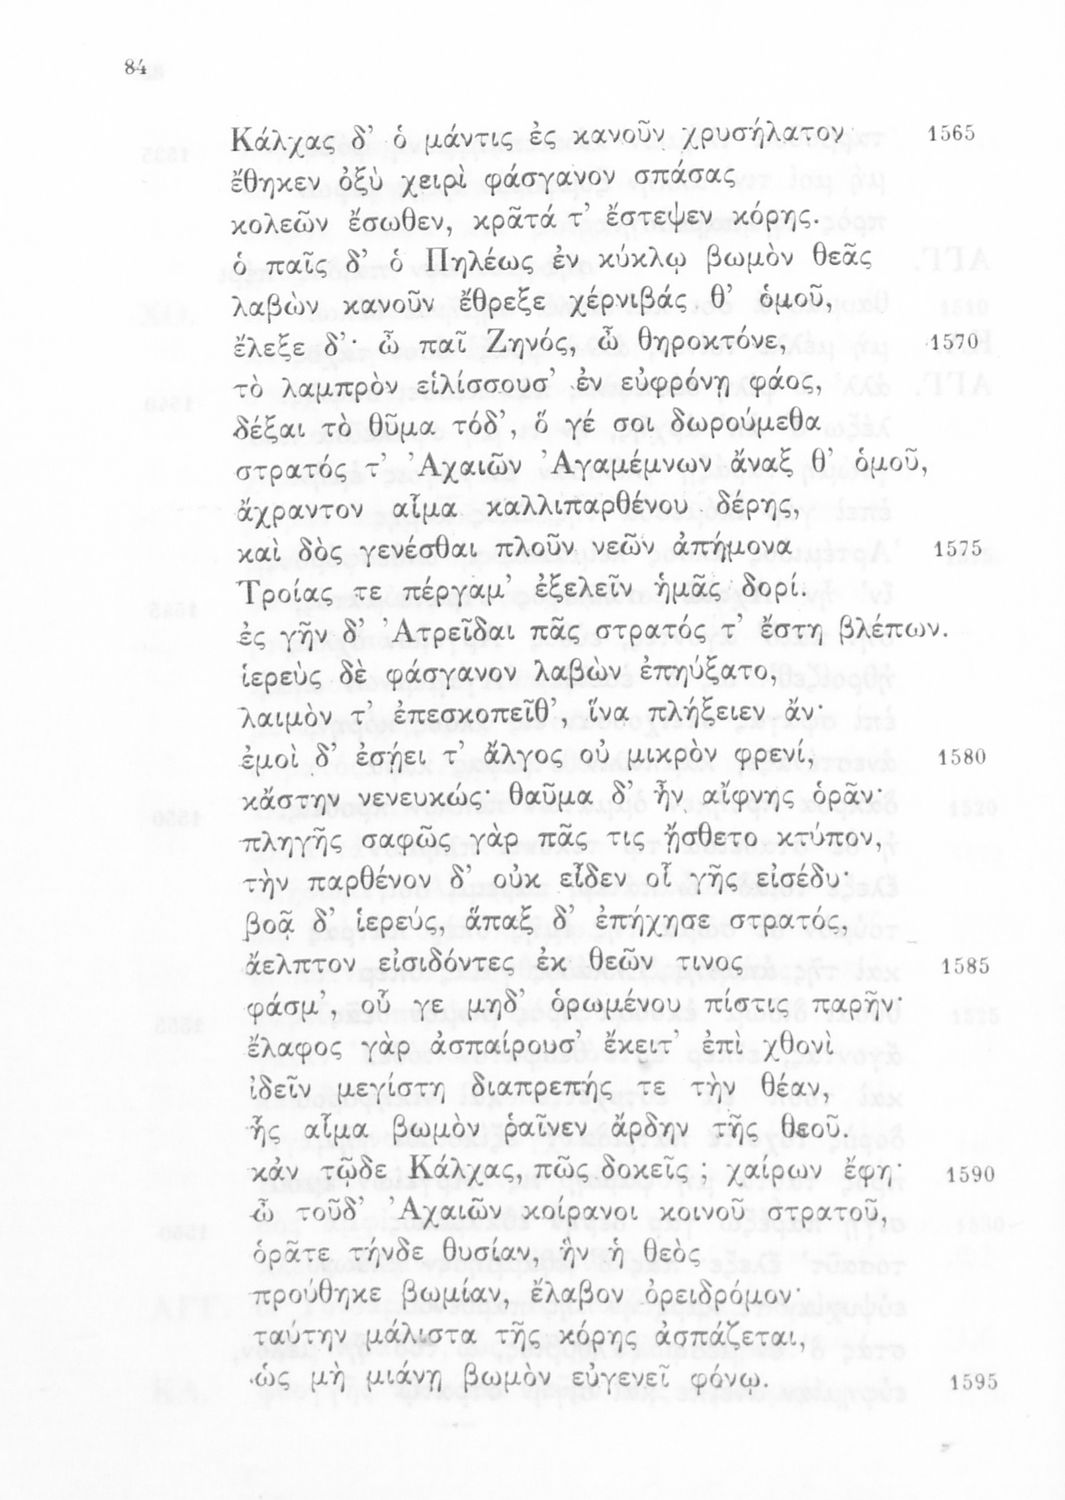 84
Κάλχας δ’ ὁ μάντις ἐς κανοῦν χρυσήλατον 1565
ἔθηκεν ὀξὺ χειρὶ φάσγανον σπάσας
κολεῶν ἔσωθεν, κρᾶτά τ’ ἔστεψεν κόρης.
ὁ παῖς δ’ ὁ Πηλέως ἐν κύκλῳ βωμὸν θεᾶς
λαβὼν κανοῦν ἔθρεξε χέρνιβάς θ’ ὁμοῦ,
ἔλεξε δ’· ὦ παῖ Ζηνός, ὦ θηροκτόνε, 1570
τὸ λαμπρὸν εἱλίσσουσ’ ἐν εὐφρόνῃ φάος,
δέξαι τὸ θῦμα τόδ’, ὅ γέ σοι δωρούμεθα
στρατός τ’ Ἀχαιῶν Ἀγαμέμνων ἄναξ θ’ ὁμοῦ,
ἄχραντον αἷμα καλλιπαρθένου δέρης,
καὶ δὸς γενέσθαι πλοῦν νεῶν ἀπήμονα 1575
Τροίας τε πέργαμ’ ἐξελεῖν ἡμᾶς δορί.
ἐς γῆν δ’ Ἀτρεῖδαι πᾶς στρατός τ’ ἔστη βλέπων.
ἱερεὺς δὲ φάσγανον λαβὼν ἐπηύξατο,
λαιμὸν τ’ ἐπεσκοπεῖθ’, ἵνα πλήξειεν ἄν·
ἐμοὶ δ’ ἐσῄει τ’ ἄλγος οὐ μικρὸν φρενί, 1580
κἄστην νενευκώς· θαῦμα δ’ ἦν αἴφνης ὁρᾶν·
πληγῆς σαφῶς γὰρ πᾶς τις ᾔσθετο κτύπον,
τὴν παρθένον δ’ οὐκ εἶδεν οἷ γῆς εἰσέδυ·
βοᾷ δ’ ἱερεύς, ἅπαξ δ’ ἐπήχησε στρατός,
ἄελπτον εἰσιδόντες ἐκ θεῶν τινος 1585
φάσμ’, οὗ γε μηδ’ ὁρωμένου πίστις παρῆν·
ἔλαφος γὰρ ἀσπαίρουσ’ ἔκειτ’ ἐπὶ χθονὶ
ἰδεῖν μεγίστη διαπρεπής τε τὴν θέαν,
ἧς αἷμα βωμὸν ῥαῖνεν ἄρδην τῆς θεοῦ.
κἀν τῷδε Κάλχας, πῶς δοκεῖς ; χαίρων ἔφη· 1590
ὦ τοῦδ’ Ἀχαιῶν κοίρανοι κοινοῦ στρατοῦ,
ὁρᾶτε τήνδε θυσίαν, ἣν ἡ θεὸς
προύθηκε βωμίαν, ἔλαβον ὀρειδρόμον·
ταύτην μάλιστα τῆς κόρης ἀσπάζεται,
ὡς μὴ μιάνῃ βωμὸν εὐγενεῖ φόνῳ. 1595